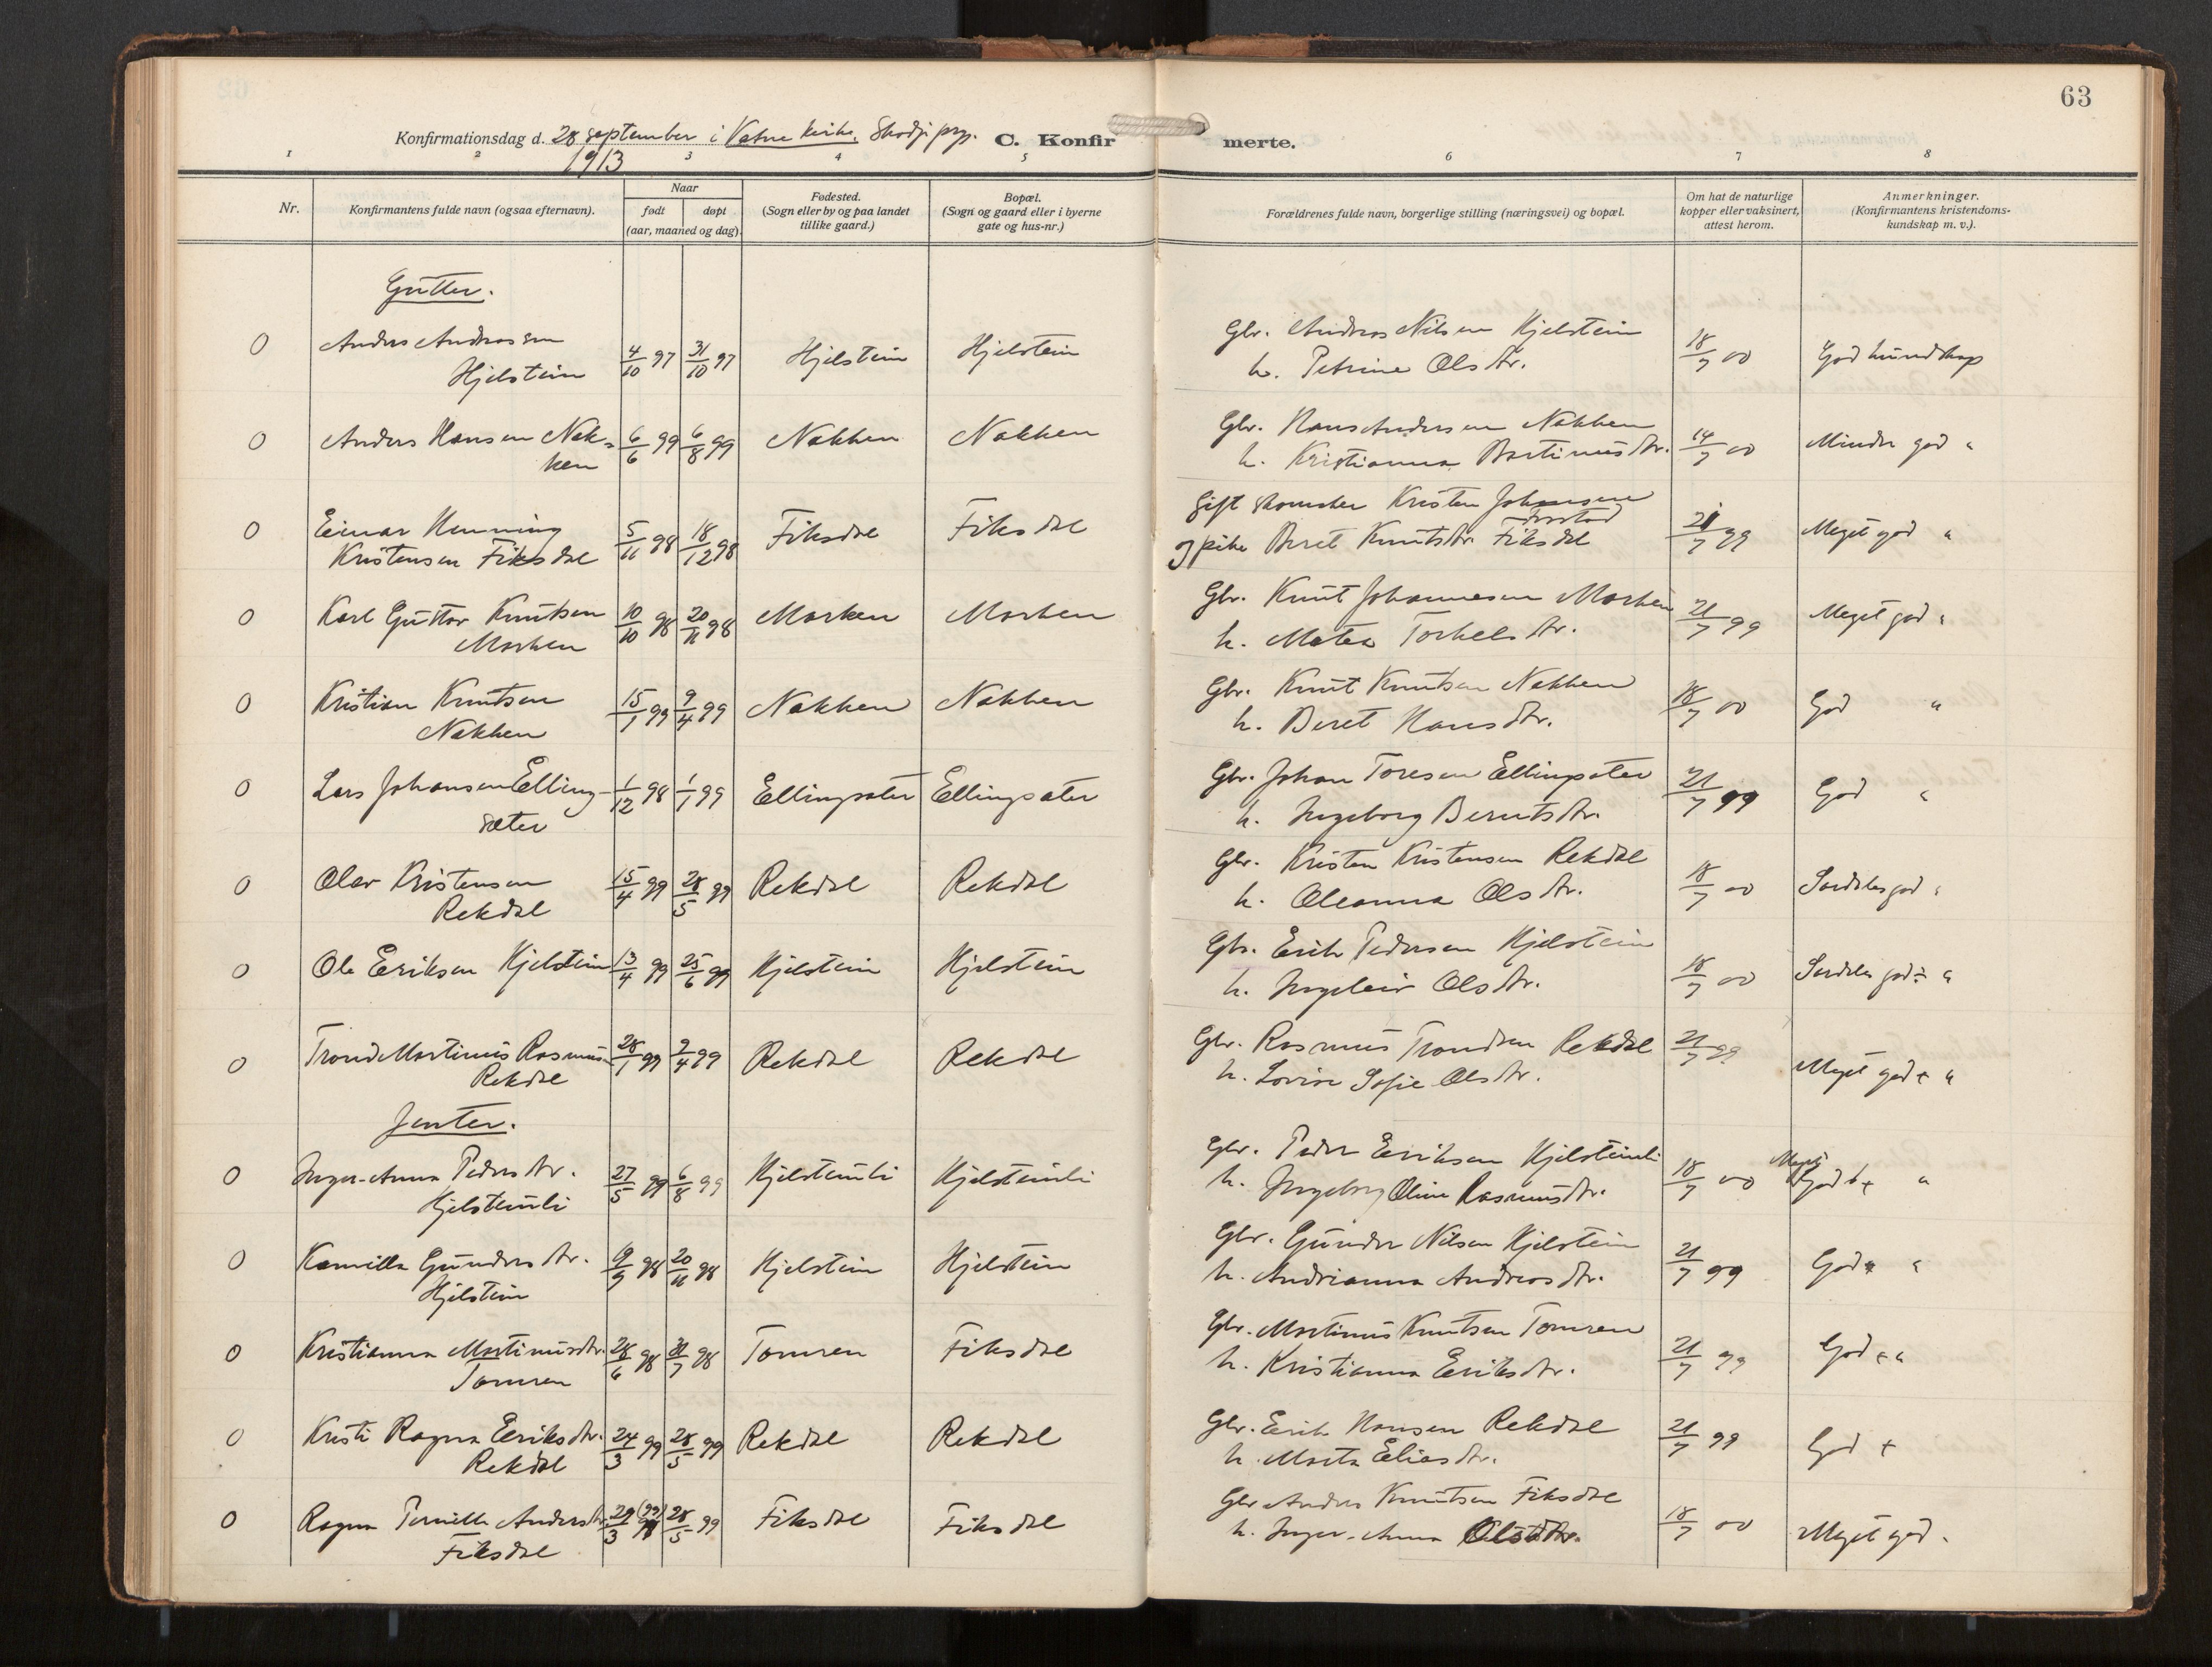 63
Konfirmationsdag d. 28 september i Vatne kirke, Skodje prgj.
1913
C. Konfirmerte.
1 2 3 4 5 6 7 8
Nr.
Konfirmantens fulde navn (ogsaa efternavn).
Naar
født
døpt
(aar, maaned og dag).
Fødested.
(Sogn eller by og paa landet
tillike gaard.)
Bopæl.
(Sogn og gaard eller i byerne
gate og hus-nr.)
Forældrenes fulde navn, borgerlige stilling (næringsvei) og bopæl.
Om hat de naturlige
kopper eller vaksinert,
attest herom.
Anmerkninger.
(Konfirmantens kristendoms-
kundskap m. v.).
Gutter.
0 Anders Andreassen
Hjelstein 4/10 97 31/10 97 Hjelstein Hjelstein
Gbr. Andreas Nilsen Hjelstein
h. Petrine Olsdtr. 18/7 00 God kundskap
0 Anders Hansen Nak-
ken 6/6 99 6/8 99 Nakken Nakken
Gbr. Hans Andersen Nakken
h. Kristianna Bastinusdtr. 14/7 00 Mindre god "
0 Einar Henning
Kristensen Fiksdal 5/11 98 18/12 98 Fiksdal Fiksdal
Gift skomaker Kristen Johansen
og pike Beret Knutsdtr. Fiksdal 21/7 99 Meget god "
0 Karl Gustav Knutsen
Morken 10/10 98 20/11 98 Morken Morken
Gbr. Knut Johannesen Morken
h. Matea Torkelsdtr. 21/7 99 Meget god "
0 Kristian Knutsen
Nakken 15/1 99 9/4 99 Nakken Nakken
Gbr. Knut Knutsen Nakken
h. Beret Hansdtr. 18/7 00 God "
0 Lars Johansen Elling-
sæter 1/12 98 1/1 99 Ellingsæter Ellingsæter
Gbr. Johan Toresen Ellingsæter
h. Ingeborg Berntsdtr. 21/7 99 God "
0 Olav Kristensen
Rekdal 15/4 99 28/5 99 Rekdal Rekdal
Gbr. Kristen Kristensen Rekdal
h. Oleanna Olsdtr. 18/7 00 Særdeles god "
0 Ole Eriksen Hjelstein 13/4 99 25/6 99 Hjelstein Hjelstein
Gbr. Erik Pedersen Hjelstein
h. Ingeleiv Olsdtr. 18/7 00 Særdeles god ÷ "
0 Trond Martinus Rasmussen
Rekdal 28/1 99 9/4 99 Rekdal Rekdal
Gbr. Rasmus Trondsen Rekdal
h. Lovise Sofie Olsdtr. 21/7 99 Meget god + "
Jenter.
0 Inger-Anna Pedersdtr.
Hjelsteinli 27/5 99 6/8 99 Hjelsteinli Hjelsteinli
Gbr. Peder Eriksen Hjelsteinli
h. Ingeborg Oline Rasmusdtr. 18/7 00 Meget
God + "
0 Kamilla Gundersdtr.
Hjelstein 19/9 98 20/11 98 Hjelstein Hjelstein
Gbr. Gunder Nilsen Hjelstein
h. Andrianna Andreasdtr. 21/7 99 God "
0 Kristianna Martinusdtr.
Tomren 28/6 98 31/7 98 Tomren Fiksdal
Gbr. Martinus Knutsen Tomren
h. Kristianna Eriksdtr. 21/7 99 God + "
0 Kristi Ragna Eriksdtr.
Rekdal 24/3 99 28/5 99 Rekdal Rekdal
Gbr. Erik Hansen Rekdal
h. Marta Eliasdtr. 21/7 99 God +
0 Ragna Pernille Andersdtr.
Fiksdal 29/3 (99) 28/5 99 Fiksdal Fiksdal
Gbr Anders Knutsen Fiksdal
h. Inger-Anna Olsdtr. 18/7 00 Meget god "